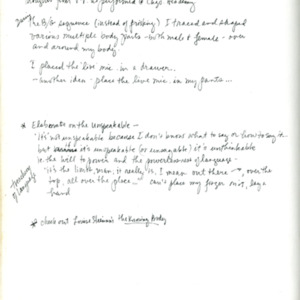 the B/G sequence (instead of groping) I traced and shaped
various multiple body parts - both male & female - over
and around my body.
I placed the live mic in a drawer...
- another idea - place the live mic in my pants...
* Elaborate on the Unspeakable -
"It's not unspeakable because I don't know what to say or how to say it
but it's unspeakable (or unimaginable) it's unthinkable
ie. the will to power and the powerlessness of language -
"It's the living man, is really is, I mean out there, over the
top, all over the place..." can't place my finger on it, lay a
hand
of language
* check out Louise Steinman's The Knowing Body